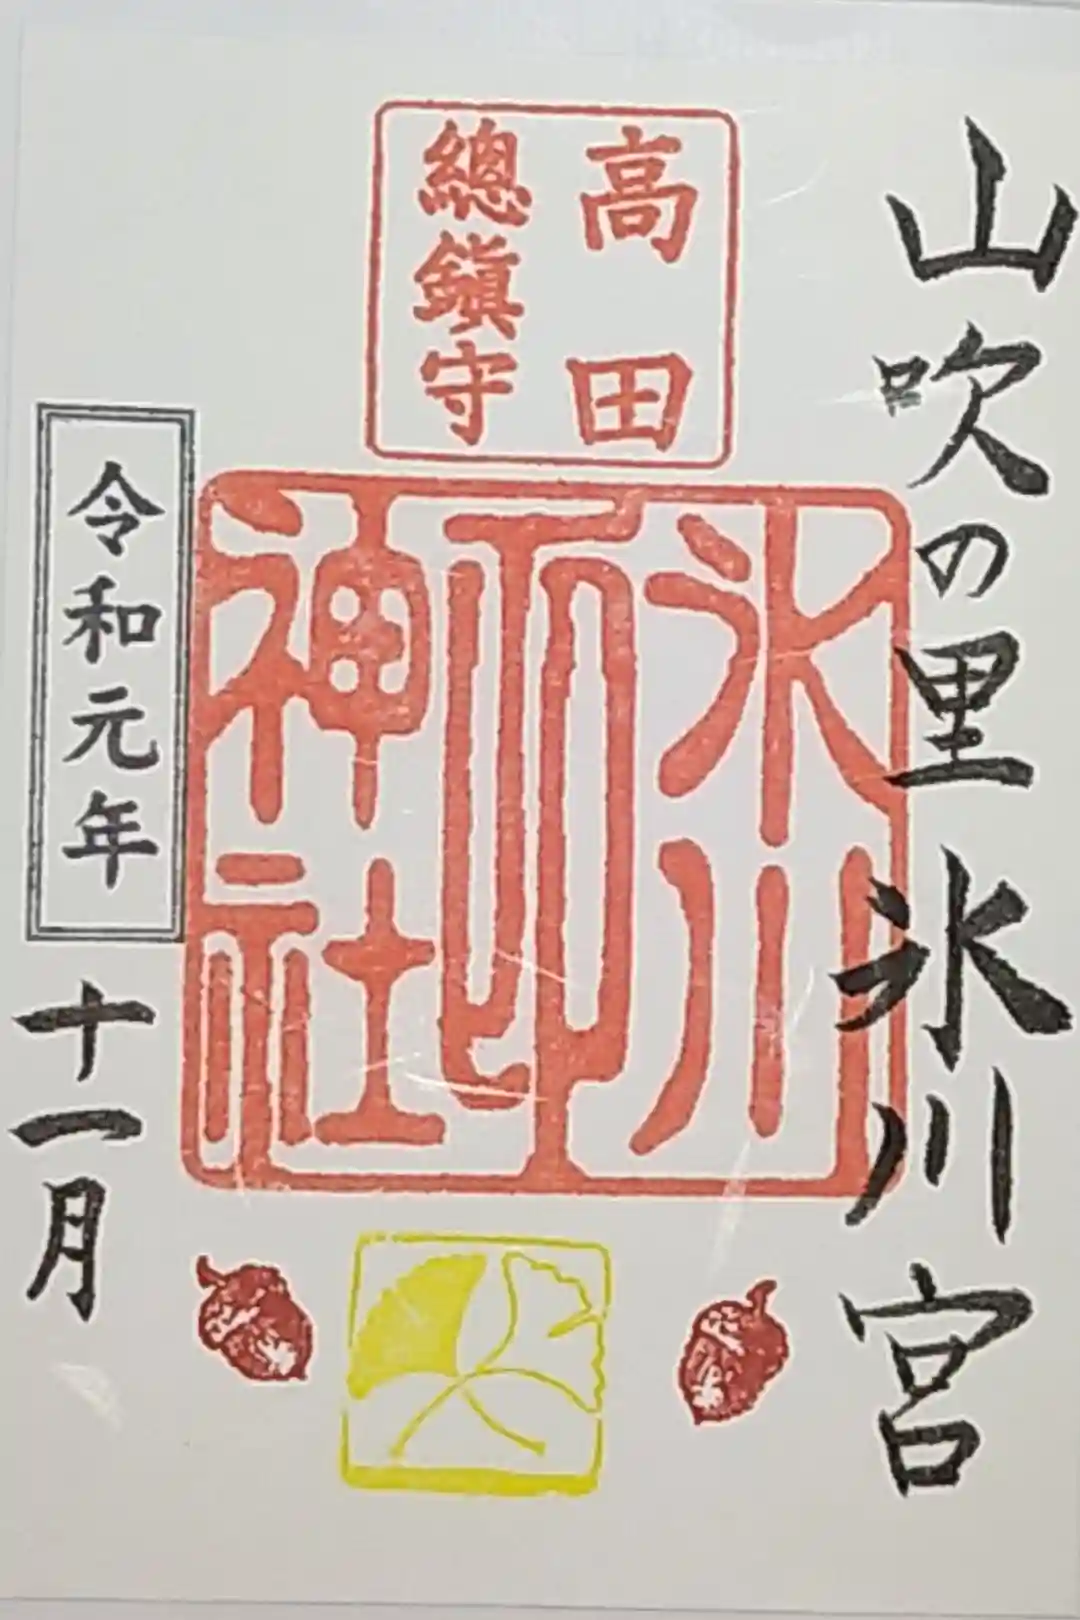 山吹の里氷川宮
高田
總鎮守
氷川
神社
令和元年
十一月